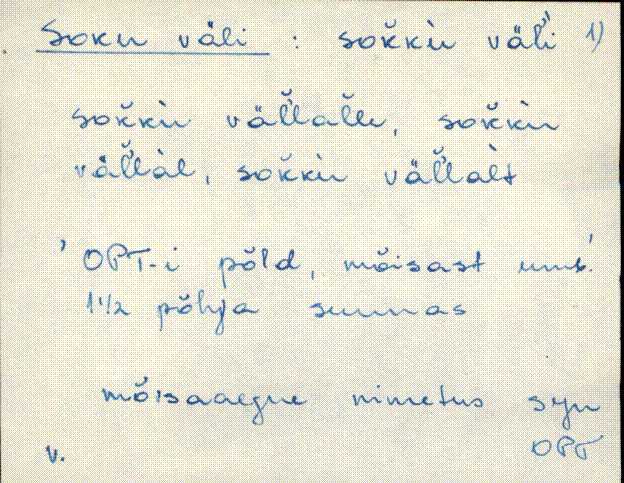 Soku väli : sok̆k̆ù väl̆'i 1)
sok̆k̆ù väl̆'l̆al̆le, sok̆k̆ù
väl̆'l̆àl, sok̆k̆ù väl̆'l̆àlt
' OPT-i põld, mõisast umb.'
1 1/2 põhja suunas
mõisaaegne nimetus syn
v. OPT